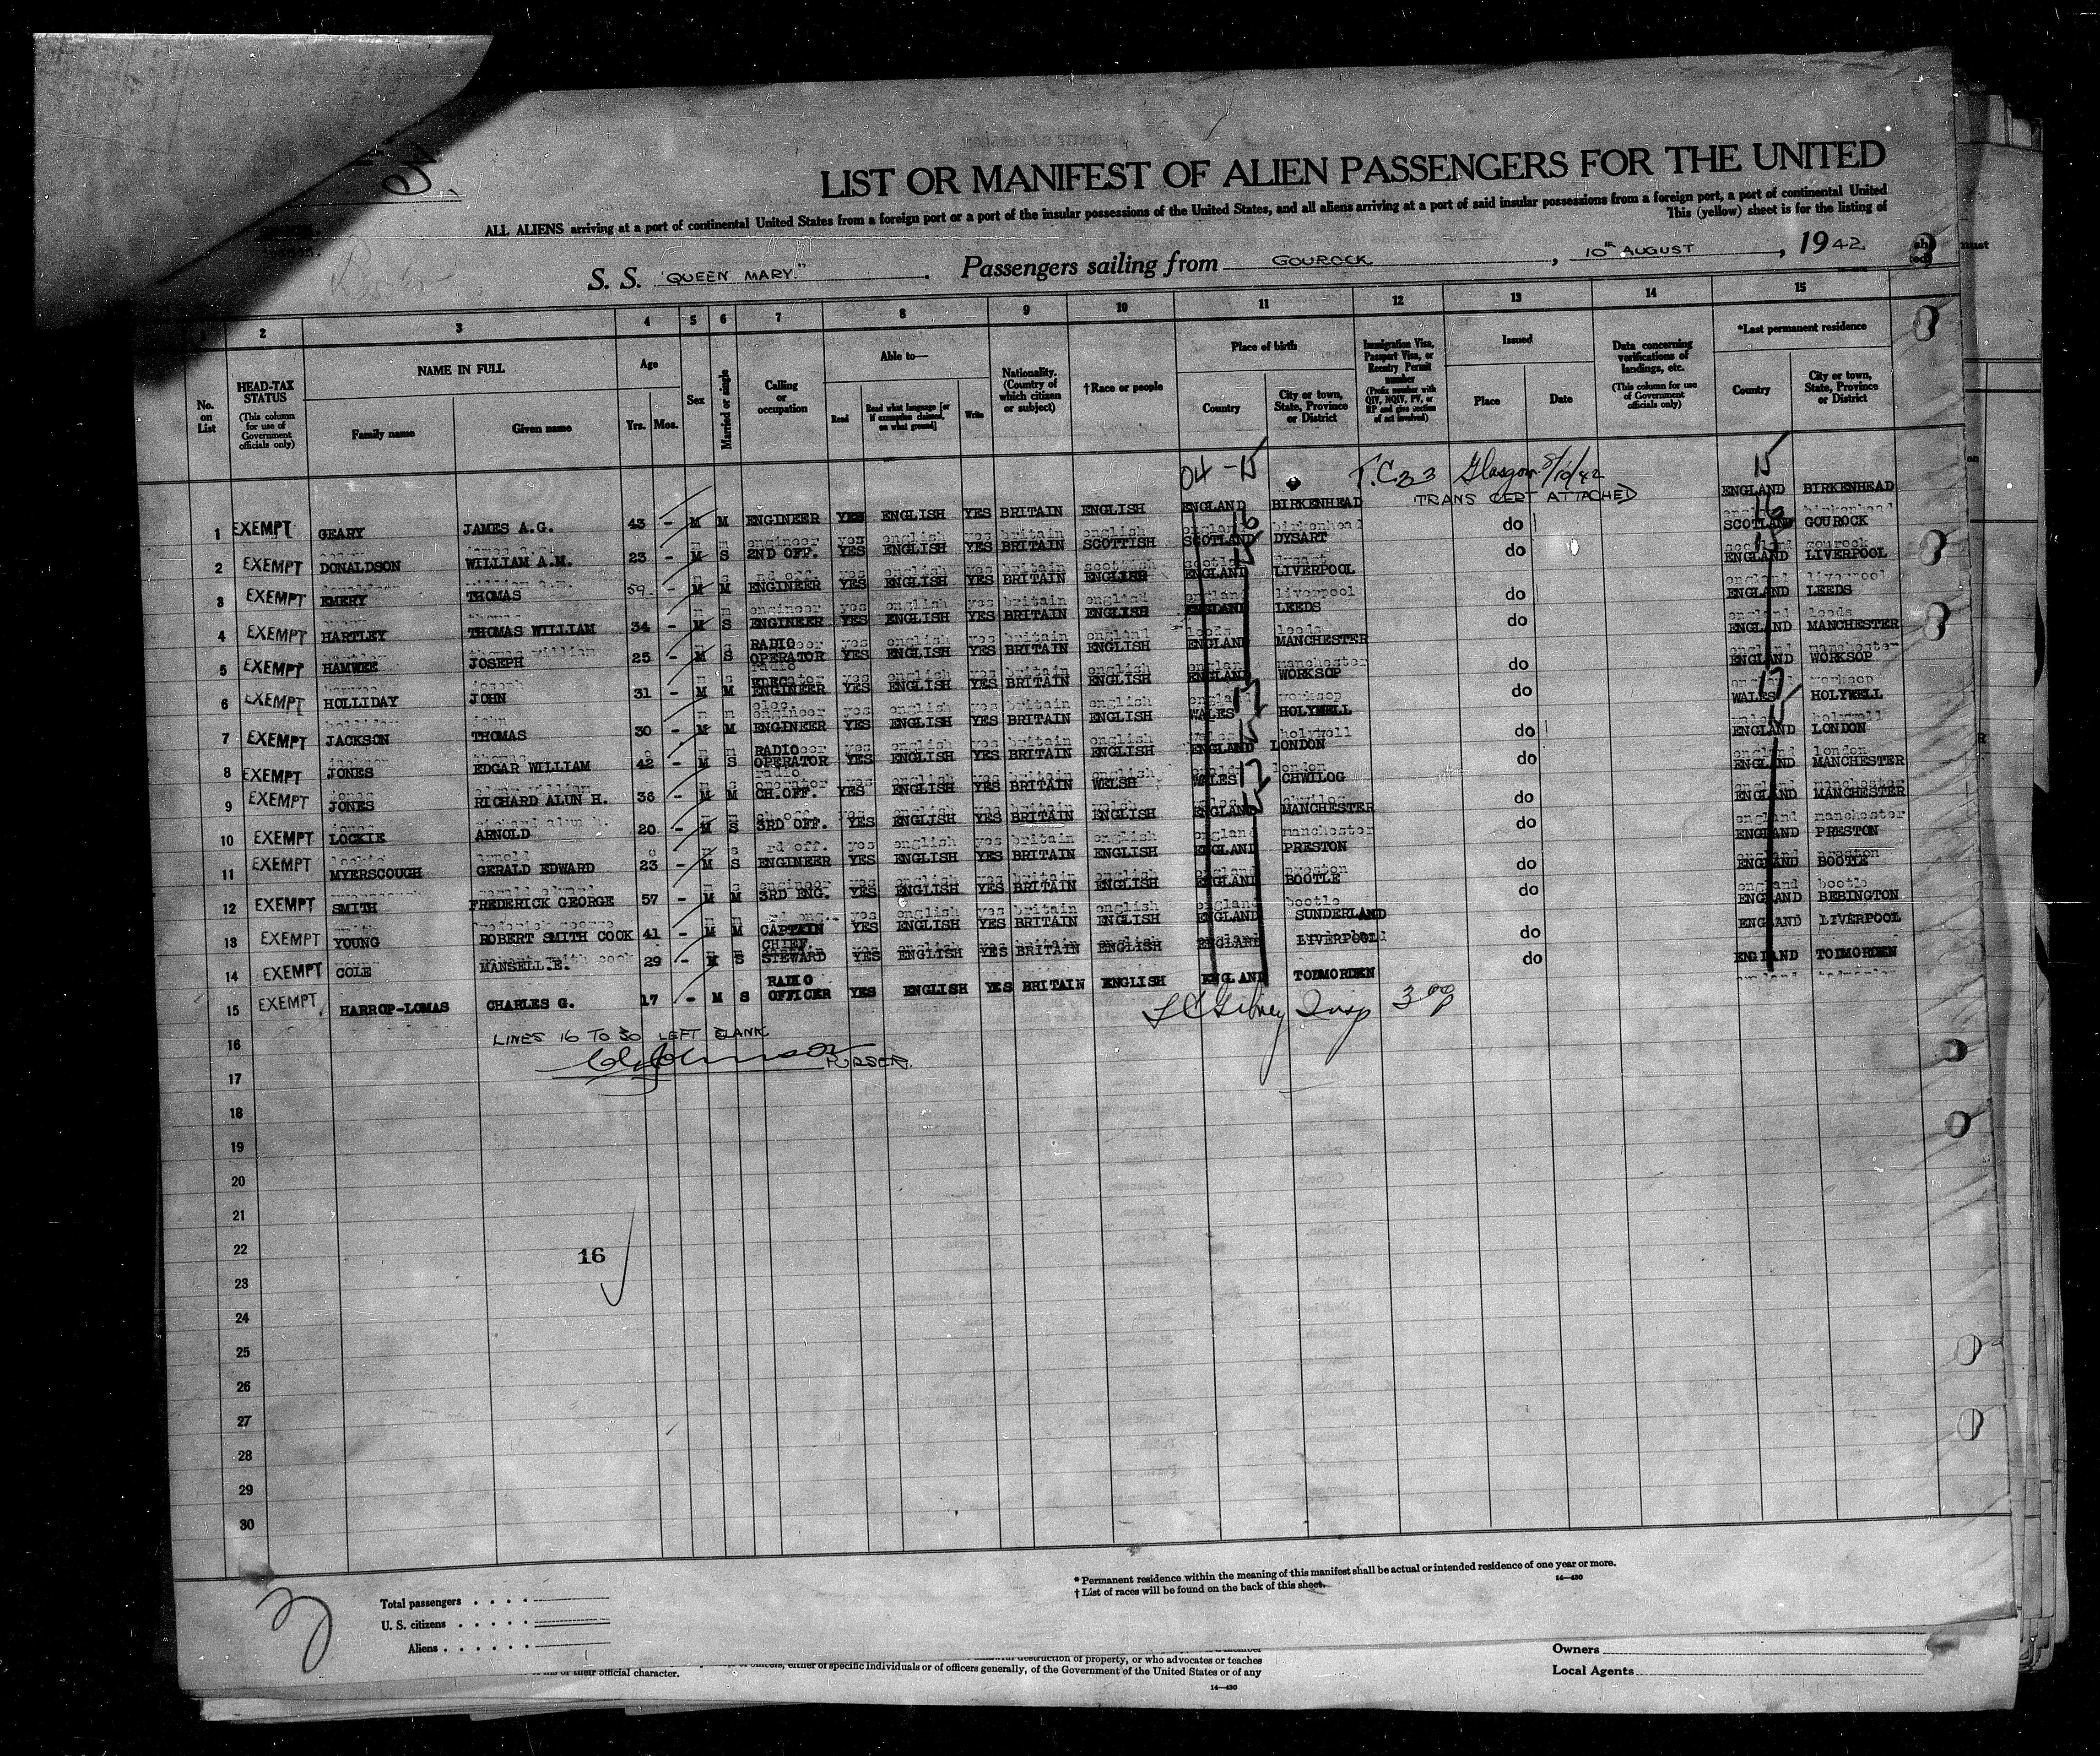 LIST OR MANIFEST OF ALIEN PASSENGERS FOR THE UNITED
ALL ALIENS arriving at a port of continental United States from a foreign port or a port of the insular possessions of the United States, and all aliens arriving at a port of said insular possessions from a foreign port, a port of continental United
This (yellow) sheet is for the listing of
S. S. "QUEEN MARY." Passengers sailing from GOUROCK, 10TH AUGUST, 1942
2 3 4 5 6 7 8 9 10 11 12 13 14 15
No. on List
HEAD-TAX STATUS (This column for use of Government officials only)
NAME IN FULL Family name Given name
Age Yrs. Mos.
Sex
Married or single
Calling or occupation
Able to— Read Read what language [or if exemption claimed, on what ground] Write
Nationality. (Country of which citizen or subject)
†Race or people
Place of birth Country City or town, State, Province or District
Immigration Visa, Passport Visa, or Reentry Permit number (Prefix number with QIV, NQIV, PV, or RP and give section of act involved)
Issued Place Date
Data concerning verifications of landings, etc. (This column for use of Government officials only)
*Last permanent residence Country City or town, State, Province or District
04 - 15 T.C. 33 Glasgow 8/10/42 15
TRANS CERT ATTACHED
1 EXEMPT GEARY JAMES A.G. 43 - M M ENGINEER YES ENGLISH YES BRITAIN ENGLISH ENGLAND BIRKENHEAD ENGLAND BIRKENHEAD
2 EXEMPT DONALDSON WILLIAM A.M. 23 - M S 2ND OFF. YES ENGLISH YES BRITAIN SCOTTISH SCOTLAND DYSART do SCOTLAND GOUROCK
3 EXEMPT EMERY THOMAS 59 - M M ENGINEER YES ENGLISH YES BRITAIN ENGLISH ENGLAND LIVERPOOL do ENGLAND LIVERPOOL
4 EXEMPT HARTLEY THOMAS WILLIAM 34 - M S ENGINEER YES ENGLISH YES BRITAIN ENGLISH ENGLAND LEEDS do ENGLAND LEEDS
5 EXEMPT HAMWEE JOSEPH 25 - M S RADIO OPERATOR YES ENGLISH YES BRITAIN ENGLISH ENGLAND MANCHESTER do ENGLAND MANCHESTER
6 EXEMPT HOLLIDAY JOHN 31 - M M ELEC. ENGINEER YES ENGLISH YES BRITAIN ENGLISH ENGLAND WORKSOP do ENGLAND WORKSOP
7 EXEMPT JACKSON THOMAS 30 - M M ENGINEER YES ENGLISH YES BRITAIN ENGLISH WALES HOLYWELL do WALES HOLYWELL
8 EXEMPT JONES EDGAR WILLIAM 42 - M S RADIO OPERATOR YES ENGLISH YES BRITAIN ENGLISH ENGLAND LONDON do ENGLAND LONDON
9 EXEMPT JONES RICHARD ALUN H. 36 - M M CH.OFF. YES ENGLISH YES BRITAIN WELSH WALES CHWILOG do ENGLAND MANCHESTER
10 EXEMPT LOCKIE ARNOLD 20 - M S 3RD OFF. YES ENGLISH YES BRITAIN ENGLISH ENGLAND MANCHESTER do ENGLAND MANCHESTER
11 EXEMPT MYERSCOUGH GERALD EDWARD 23 - M S ENGINEER YES ENGLISH YES BRITAIN ENGLISH ENGLAND PRESTON do ENGLAND PRESTON
12 EXEMPT SMITH FREDERICK GEORGE 57 - M M 3RD ENG. YES ENGLISH YES BRITAIN ENGLISH ENGLAND BOOTLE do ENGLAND BOOTLE
13 EXEMPT YOUNG ROBERT SMITH COOK 41 - M M CAPTAIN YES ENGLISH YES BRITAIN ENGLISH ENGLAND SUNDERLAND do ENGLAND BEBINGTON
14 EXEMPT COLE MANSELL.E. 29 - M S CHIEF. STEWARD YES ENGLISH YES BRITAIN ENGLISH ENGLAND LIVERPOOL do ENGLAND LIVERPOOL
15 EXEMPT HARROP-LOMAS CHARLES G. 17 - M S RADIO OFFICER YES ENGLISH YES BRITAIN ENGLISH ENGLAND TODMORDEN do ENGLAND TODMORDEN
16 LINES 16 TO 30 LEFT BLANK
17 PURSER.
18
19
20
21
22 16
23
24
25
26
27
28
29
30
* Permanent residence within the meaning of this manifest shall be actual or intended residence of one year or more.
† List of races will be found on the back of this sheet.
14—430
Total passengers
U. S. citizens
Aliens
Owners
Local Agents
destruction of property, or who advocates or teaches
their official character. officers, either of specific individuals or of officers generally, of the Government of the United States or of any
14—430